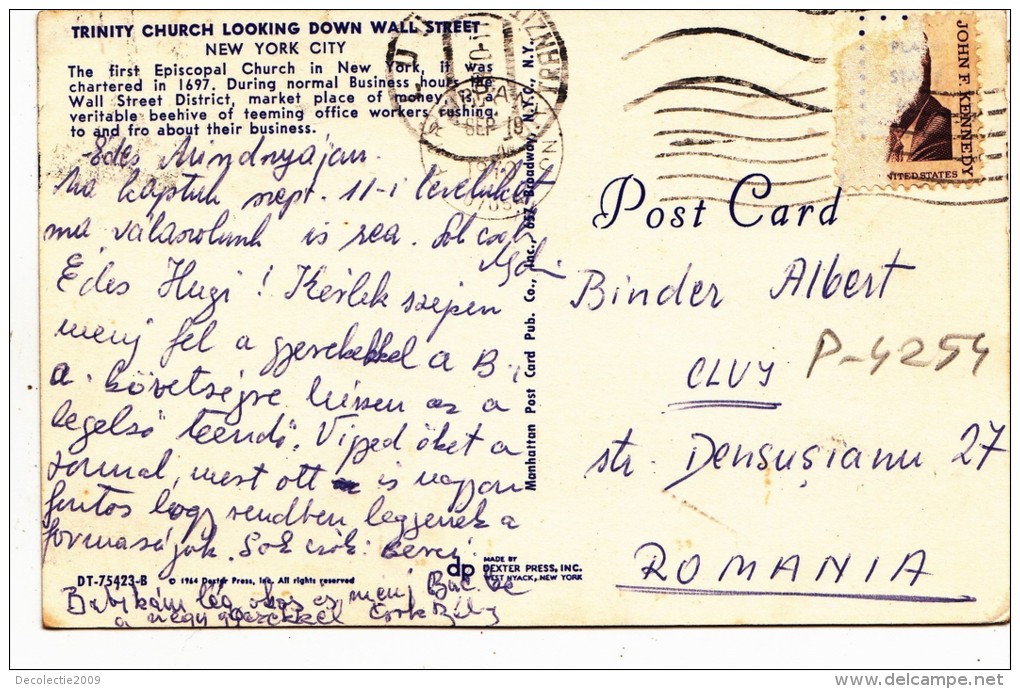 TRINITY CHURCH LOOKING DOWN WALL STREET
NEW YORK CITY
The first Episcopal Church in New York, it was
chartered in 1697. During normal Business hours the
Wall Street District, market place of money is a
veritable beehive of teeming office workers rushing
to and fro about their business.
Édes Mindnyájan.
Ma kaptuk szept. 11-i leveluket
ma válaszolunk is rea. Sok csok
Édes Hugi! Kérlek szépen
menj fel a gyerekekkel a B.,
a. követségre hiszen ez a
legelső "teendő". Vigyed őket a
mert ott is nagyon
fontos hogy rendben legyenek a
formaságok. Sok csók:
DT-75423-B © 1964 Dexter Press, Inc. All rights reserved
dp MADE BY
DEXTER PRESS, INC.
WEST NYACK, NEW YORK
Babikám lég okos es menj Buc be
a négy gyerekkel
Manhattan Post Card Pub. Co., Inc., 657 Broadway, N.Y.C., N.Y.
SEP 19
JOHN F. KENNEDY
UNITED STATES
Post Card
Binder Albert
P-4254
CLUJ
str. Densuşianu 27
ROMANIA
Decolectie2009
delcampe.net